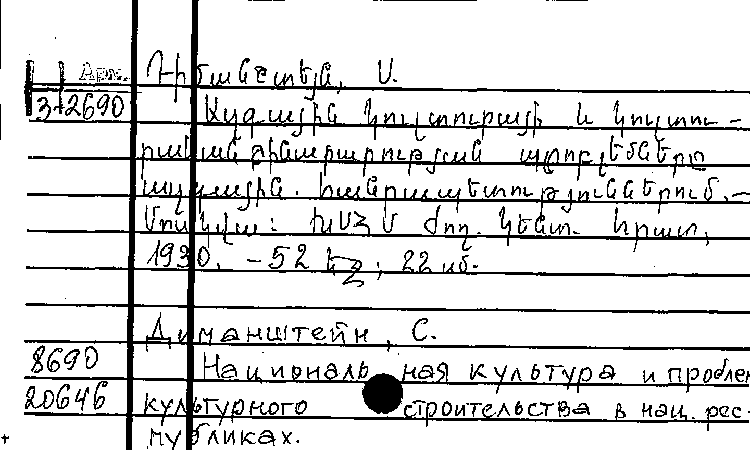 Арм.
Դիմանշտեյն, Ս.
3-2690
Ազգային կուլտուրայի և կուլտու-
րական շինարարության պրոբլեմները
ազգային. հանրապետություններում.—
Մոսկվա: ԽՍՀՄ ժող. կենտ. հրատ,
1930. – 52 էջ; 22 սմ.
Диманштейн, С.
8690
Национальная культура и проблем
20646
культурного строительства в нац. рес-
публиках.